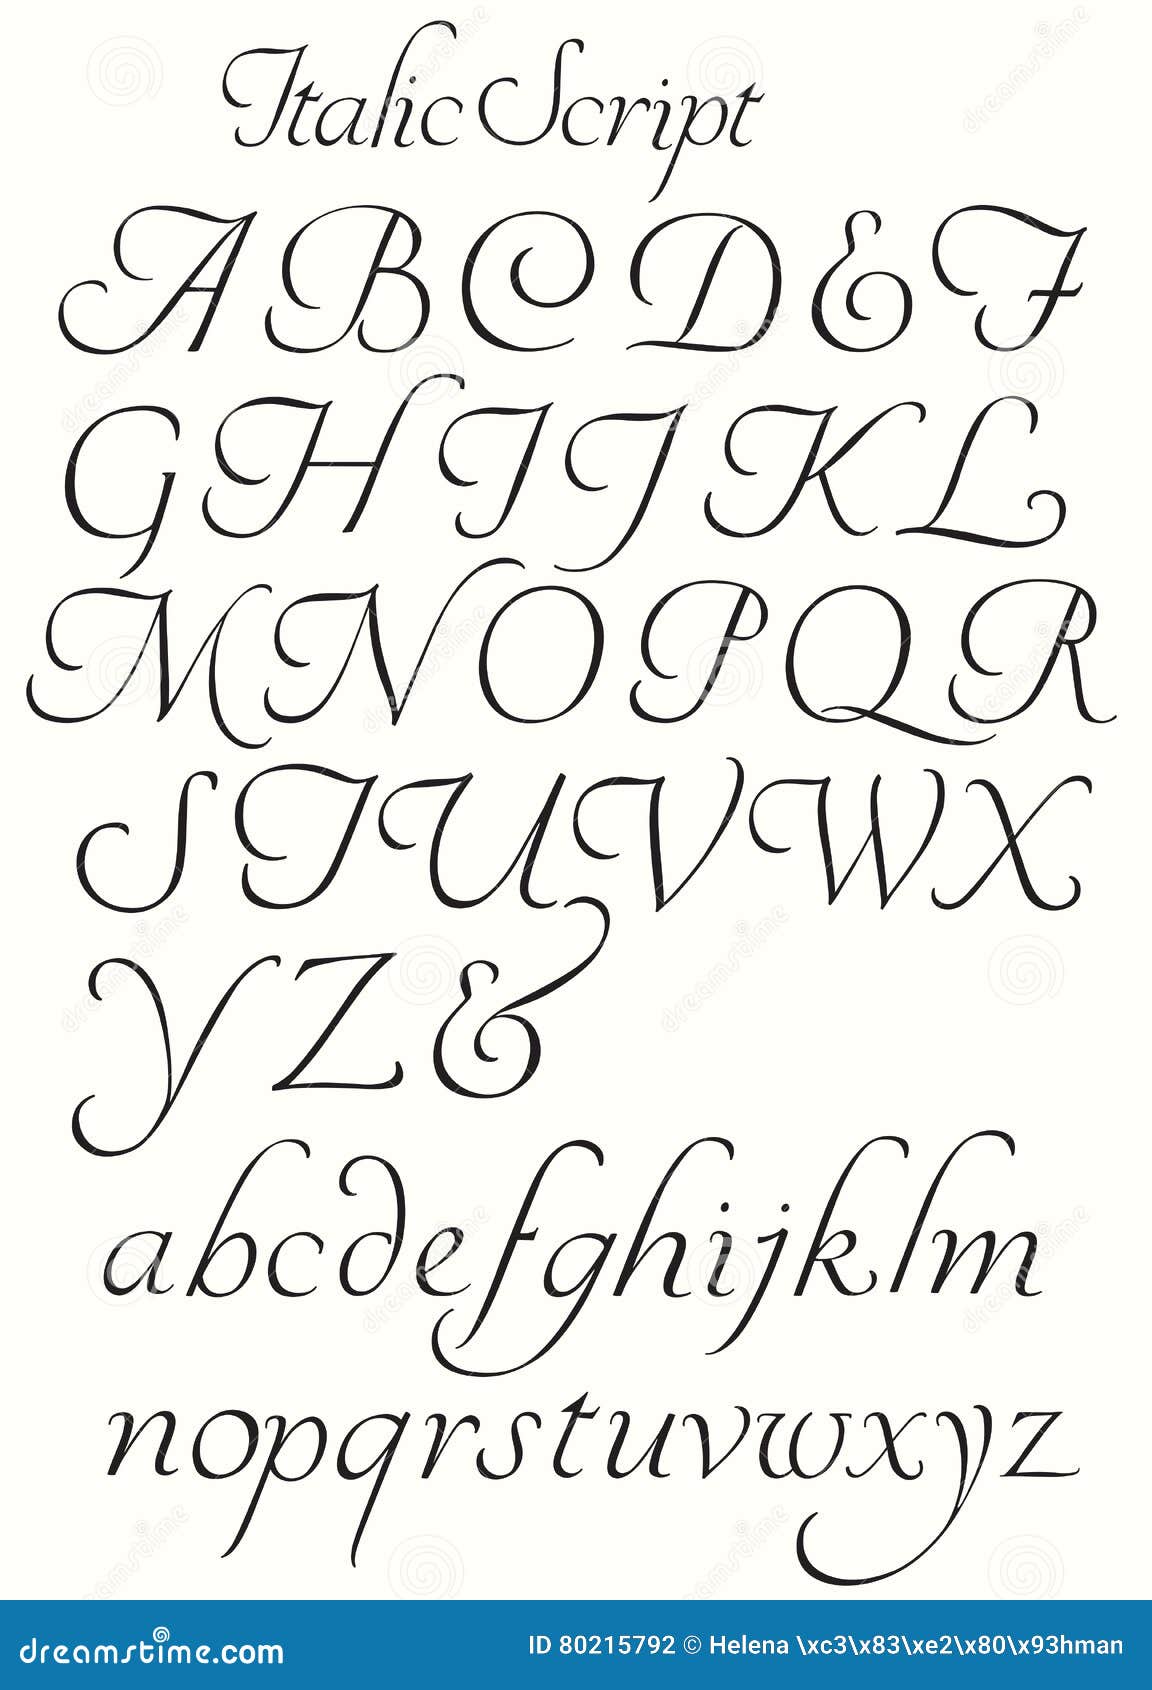 Italic Script
ABCDEF
GHIJKL
MNOPQR
STUVWX
YZ&
abcdefghijklm
nopqrstuvwxyz
dreamstime.com
ID 80215792 © Helena \xc3\x83\xe2\x80\x93hman